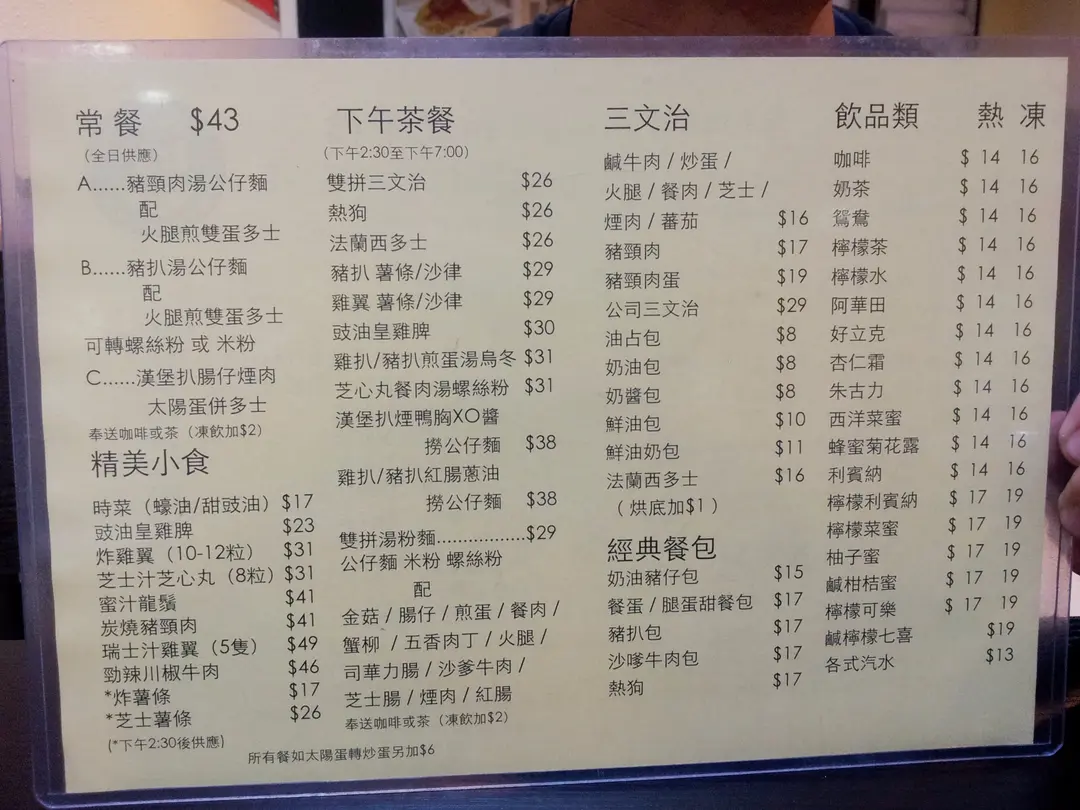 常餐 $43
(全日供應)
A......豬頸肉湯公仔麵
配
火腿煎雙蛋多士
B......豬扒湯公仔麵
配
火腿煎雙蛋多士
可轉螺絲粉 或 米粉
C......漢堡扒腸仔煙肉
太陽蛋併多士
奉送咖啡或茶（凍飲加$2）
精美小食
時菜（蠔油/甜豉油） $17
豉油皇雞脾 $23
炸雞翼（10-12粒） $31
芝士汁芝心丸（8粒） $31
蜜汁龍鬚 $41
炭燒豬頸肉 $41
瑞士汁雞翼（5隻） $49
勁辣川椒牛肉 $46
*炸薯條 $17
*芝士薯條 $26
(*下午2:30後供應)
下午茶餐
(下午2:30至下午7:00)
雙拼三文治 $26
熱狗 $26
法蘭西多士 $26
豬扒 薯條/沙律 $29
雞翼 薯條/沙律 $29
豉油皇雞脾 $30
雞扒/豬扒煎蛋湯烏冬 $31
芝心丸餐肉湯螺絲粉 $31
漢堡扒煙鴨胸XO醬
撈公仔麵 $38
雞扒/豬扒紅腸蔥油
撈公仔麵 $38
雙拼湯粉麵..................$29
公仔麵 米粉 螺絲粉
配
金菇 / 腸仔 / 煎蛋 / 餐肉 /
蟹柳 / 五香肉丁 / 火腿 /
司華力腸 / 沙爹牛肉 /
芝士腸 / 煙肉 / 紅腸
奉送咖啡或茶（凍飲加$2）
所有餐如太陽蛋轉炒蛋另加$6
三文治
鹹牛肉 / 炒蛋 /
火腿 / 餐肉 / 芝士 /
煙肉 / 蕃茄 $16
豬頸肉 $17
豬頸肉蛋 $19
公司三文治 $29
油占包 $8
奶油包 $8
奶醬包 $8
鮮油包 $10
鮮油奶包 $11
法蘭西多士 $16
（ 烘底加$1 ）
經典餐包
奶油豬仔包 $15
餐蛋 / 腿蛋甜餐包 $17
豬扒包 $17
沙嗲牛肉包 $17
熱狗 $17
飲品類 熱 凍
咖啡 $ 14 16
奶茶 $ 14 16
鴛鴦 $ 14 16
檸檬茶 $ 14 16
檸檬水 $ 14 16
阿華田 $ 14 16
好立克 $ 14 16
杏仁霜 $ 14 16
朱古力 $ 14 16
西洋菜蜜 $ 14 16
蜂蜜菊花露 $ 14 16
利賓納 $ 14 16
檸檬利賓納 $ 17 19
檸檬菜蜜 $ 17 19
柚子蜜 $ 17 19
鹹柑桔蜜 $ 17 19
檸檬可樂 $ 17 19
鹹檸檬七喜 $19
各式汽水 $13